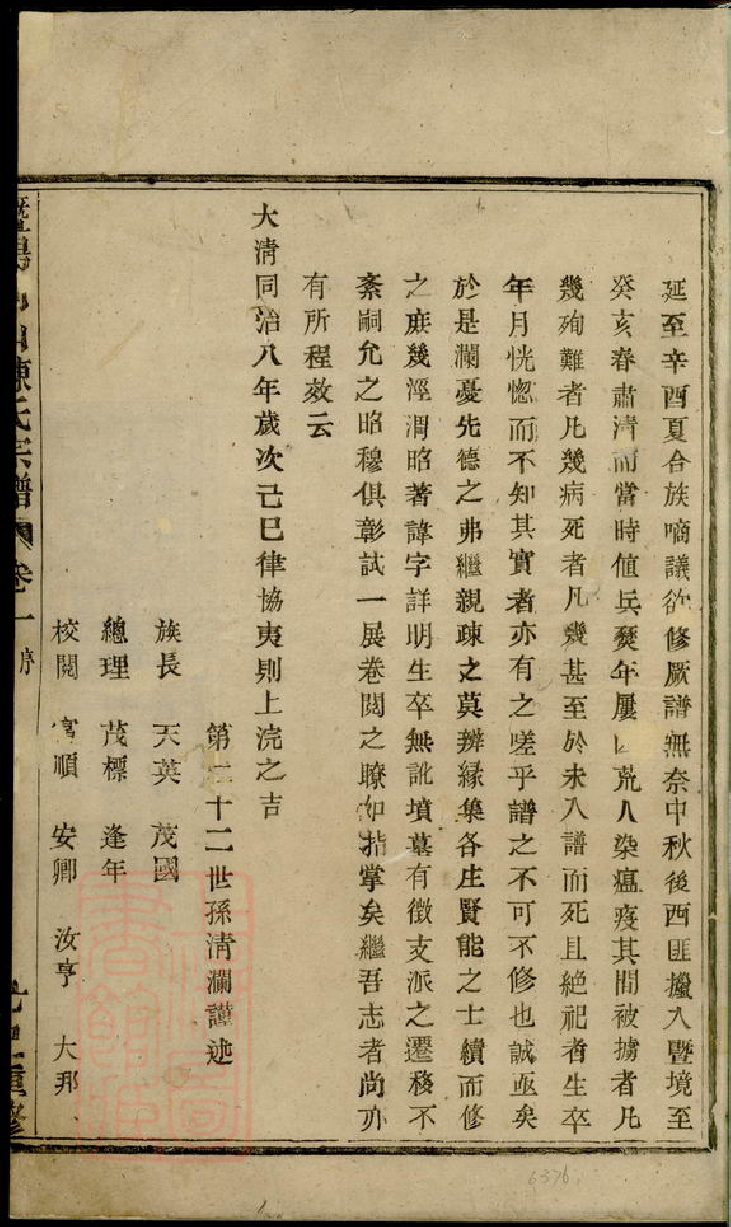 延至辛酉夏合族啇議欲修厥譜無奈中秋後西匪擾入暨境至
癸亥春肅清而當時値兵燹年屢荒人染瘟疫其間被擄者凡
幾殉難者凡幾病死者凡幾甚至於未入譜而死且絶祀者生卒
年月恍惚而不知其實者亦有之嗟乎譜之不可不修也誠亟矣
於是瀾憂先德之弗繼親疎之莫辨緣集各庄賢能之士續而修
之庶幾涇渭昭著諱字詳明生卒無訛墳墓有徵支派之遷移不
紊嗣允之昭穆俱彰試一展卷閱之瞭如指掌矣繼吾志者尚亦
有所程效云
大淸同治八年歲次己巳律協夷則上浣之吉
第二十二世孫淸瀾謹述
族長 天英 茂國
總理 茂標 逢年
校閱 富順 安卿 汝亨 大邦
暨陽 陳氏宗譜 卷一 序 重修
6376